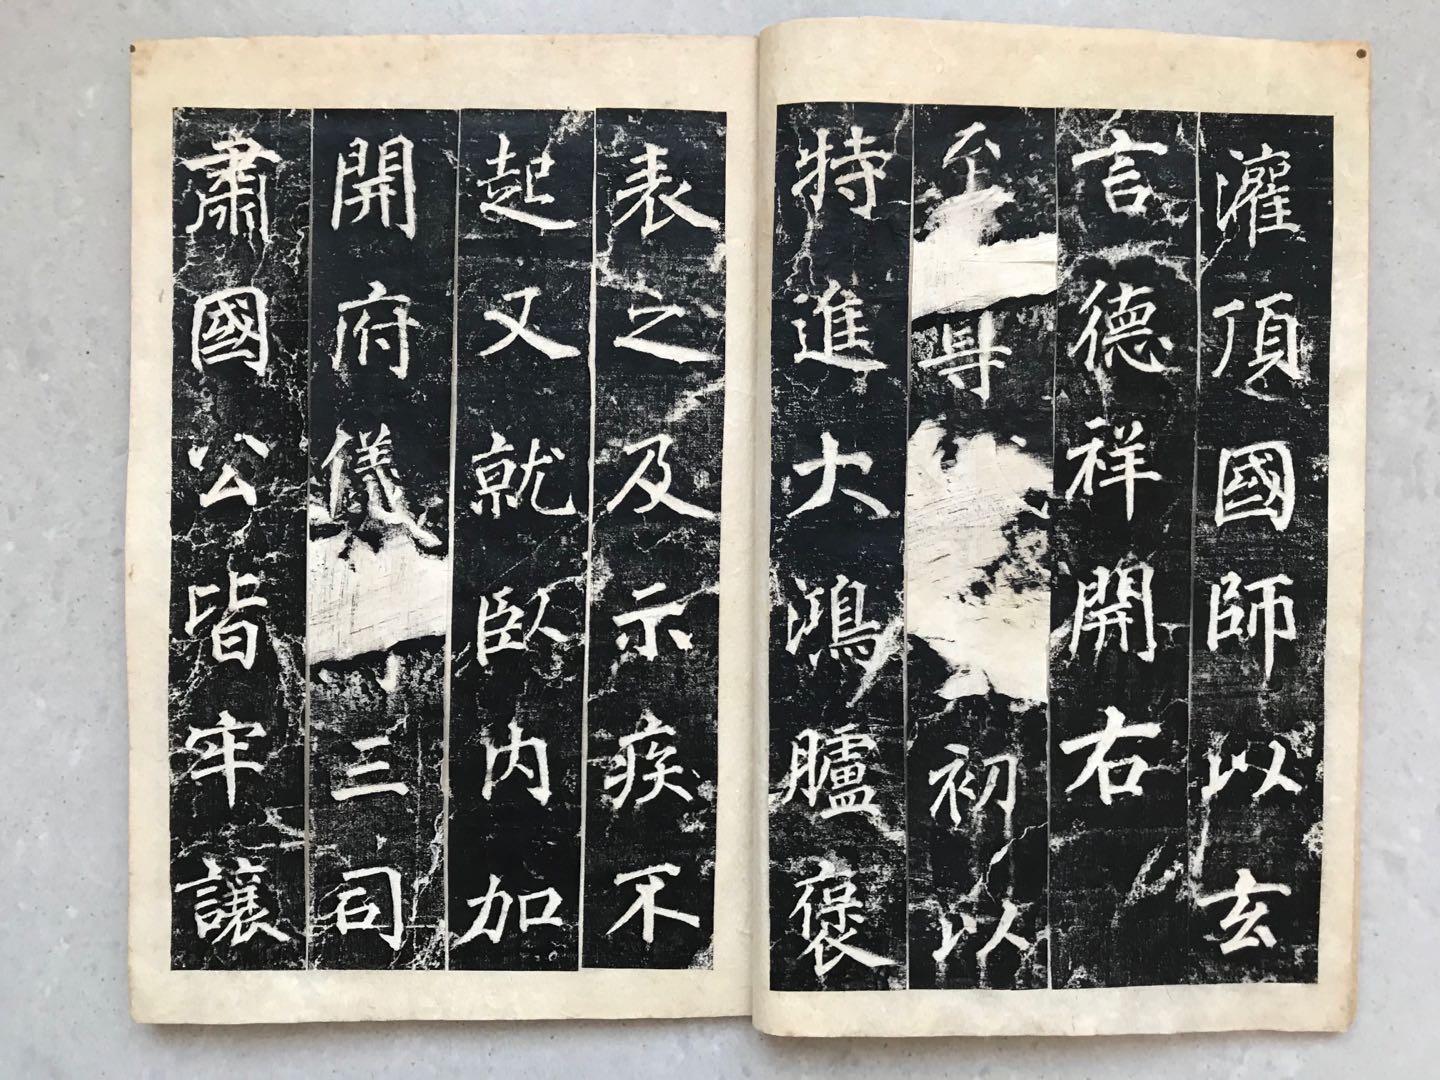 灌頂國師以玄
言德祥開右
至尊初以
特進大鴻臚褒
表之及示疾不
起又就臥內加
開府儀三司
肅國公皆牢讓